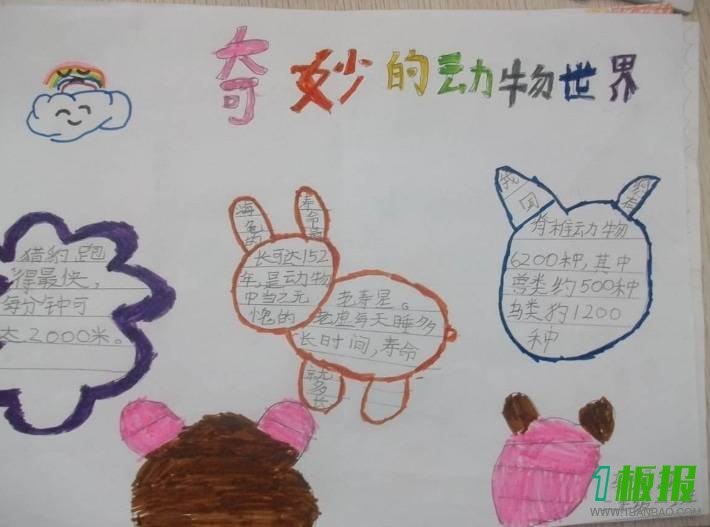 奇妙的动物世界
猎豹跑
得最快，
每分钟可
达2000米。
海龟的
寿命最
长可达152
年，是动物
中当之无
愧的
老寿星。
老虎每天睡多
长时间，寿命
就多
长
我国
约有
脊椎动物
6200种，其中
兽类约500种
鸟类约1200
种
1板报
WWW.1BANBAO.COM